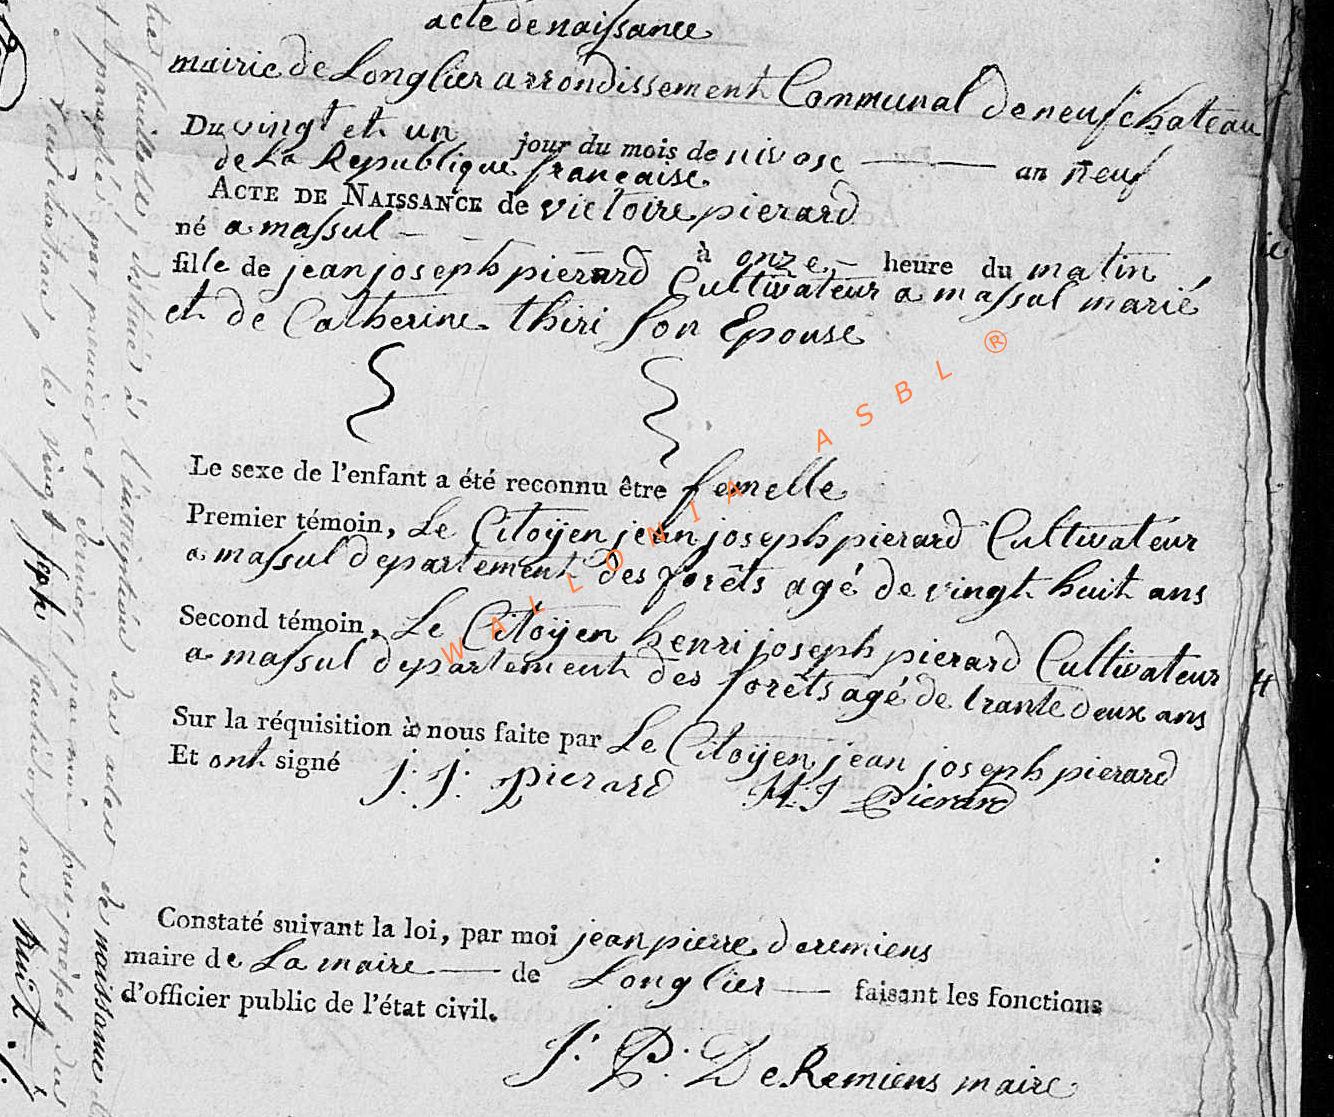 acte de naissance
mairie de Longlier arrondissement Communal de neufchateau
Du vingt et un jour du mois de nivose — an neuf
de La Republique française
ACTE DE NAISSANCE de victoire pierard
né a massul — — à onze — heure du matin
fille de jean joseph pierard Cultivateur a massul marié
et de Catherine thiri son Epouse
Le sexe de l'enfant a été reconnu être femelle
Premier témoin, Le Citoÿen jean joseph pierard Cultivateur
a massul departement des forêts agé de vingt huit ans
Second témoin, Le Citoÿen henri joseph pierard Cultivateur
a massul departement des forêts agé de trante deux ans
Sur la réquisition à nous faite par Le Citoÿen jean joseph pierard
Et ont signé j: j: pierard H: J Pierard
Constaté suivant la loi, par moi jean pierre deremiens
maire de La maire — de Longlier — faisant les fonctions
d'officier public de l'état civil.
J: P: DeRemiens maire
WALLONIA ASBL ®
feuillets, destinés à l'inscription des actes de naissance
paraphés par premier et dernier, par moi sous-préfet du
les vingt sept an huit
4